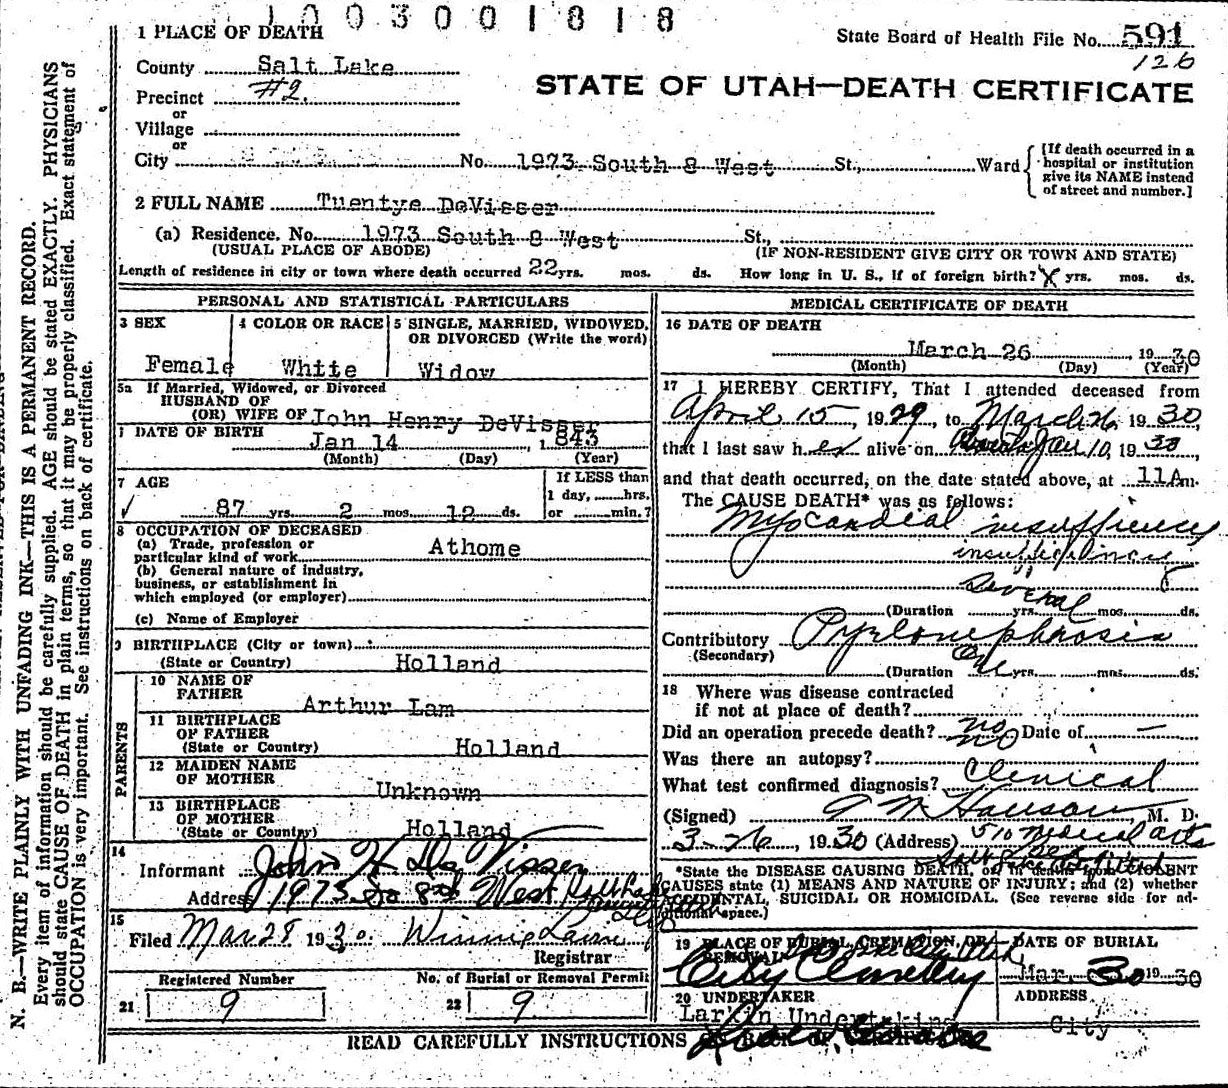 1003001818
1 PLACE OF DEATH
State Board of Health File No. 591
126
County Salt Lake
STATE OF UTAH—DEATH CERTIFICATE
Precinct #2.
or
Village
or
City No. 1973 South 8 West St., Ward
[If death occurred in a
hospital or institution
give its NAME instead
of street and number.]
2 FULL NAME Tuentye DeVisser
(a) Residence. No. 1973 South 8 West St.,
(USUAL PLACE OF ABODE) (IF NON-RESIDENT GIVE CITY OR TOWN AND STATE)
Length of residence in city or town where death occurred 22 yrs. mos. ds. How long in U. S., if of foreign birth? X yrs. mos. ds.
PERSONAL AND STATISTICAL PARTICULARS
3 SEX 4 COLOR OR RACE 5 SINGLE, MARRIED, WIDOWED,
OR DIVORCED (Write the word)
Female White Widow
5a If Married, Widowed, or Divorced
HUSBAND OF
(OR) WIFE OF John Henry DeVisser
DATE OF BIRTH
Jan 14 1843
(Month) (Day) (Year)
7 AGE
If LESS than
1 day, hrs.
87 yrs. 2 mos. 12 ds. or min.?
8 OCCUPATION OF DECEASED
(a) Trade, profession or
particular kind of work Athome
(b) General nature of industry,
business, or establishment in
which employed (or employer)
(c) Name of Employer
9 BIRTHPLACE (City or town)
(State or Country) Holland
PARENTS
10 NAME OF
FATHER
Arthur Lam
11 BIRTHPLACE
OF FATHER
(State or Country) Holland
12 MAIDEN NAME
OF MOTHER
Unknown
13 BIRTHPLACE
OF MOTHER
(State or Country) Holland
14
Informant John H. De Visser
Address 1973 So 8th West
15
Filed Mar 28 1930.
Registrar
Registered Number
No. of Burial or Removal Permit
21 9
22 9
MEDICAL CERTIFICATE OF DEATH
16 DATE OF DEATH
March 26 1930
(Month) (Day) (Year)
17 I HEREBY CERTIFY, That I attended deceased from
April 15, 1929, to March 26, 1930,
that I last saw her alive on Jan 10, 1930
and that death occurred, on the date stated above, at 11 A m.
The CAUSE DEATH* was as follows:
Myocardial insufficiency
insufficiency
several
(Duration yrs. mos. ds.
Contributory Pyelonephrosis
(Secondary) One
(Duration yrs. mos. ds.
18 Where was disease contracted
if not at place of death?
Did an operation precede death? no Date of —
Was there an autopsy? no
What test confirmed diagnosis? Clinical
(Signed) M. D.
3-26, 1930 (Address) 510 Medical Arts
*State the DISEASE CAUSING DEATH, or in deaths from VIOLENT
CAUSES state (1) MEANS AND NATURE OF INJURY; and (2) whether
ACCIDENTAL, SUICIDAL OR HOMICIDAL. (See reverse side for ad-
ditional space.)
19 PLACE OF BURIAL, CREMATION, OR
REMOVAL
City Cemetery
DATE OF BURIAL
Mar. 30 1930
20 UNDERTAKER
Larkin Undertaking
ADDRESS
City
READ CAREFULLY INSTRUCTIONS
N. B.—WRITE PLAINLY WITH UNFADING INK—THIS IS A PERMANENT RECORD.
Every item of information should be carefully supplied. AGE should be stated EXACTLY. PHYSICIANS
should state CAUSE OF DEATH in plain terms, so that it may be properly classified. Exact statement of
OCCUPATION is very important. See instructions on back of certificate.